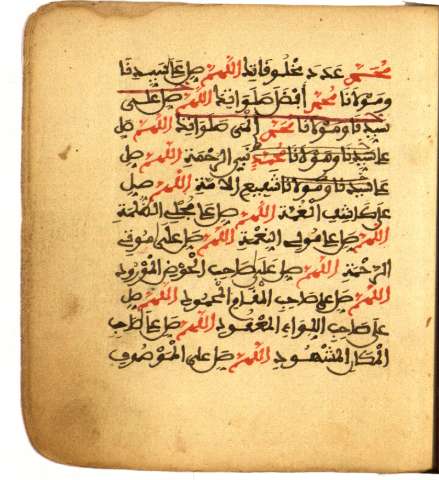 محمد عدد مخلوقاتك اللهم صل على سيدنا
ومولانا محمد افضل صلواتك اللهم صل على
سيدنا ومولانا محمد انمى صلواتك اللهم صل
على سيدنا ومولانا محمد نبي الرحمة اللهم صل
على سيدنا ومولانا شفيع الامة اللهم صل
على كاشف الغمة اللهم صل على مجلي الظلمة
اللهم صل على مولي النعمة اللهم صل على موتي
الرحمة اللهم صل على صاحب الحوض المورود
اللهم صل على صاحب المقام المحمود اللهم صل
على صاحب اللواء المعقود اللهم صل على صاحب
المكان المشهود اللهم صل على الموصوف